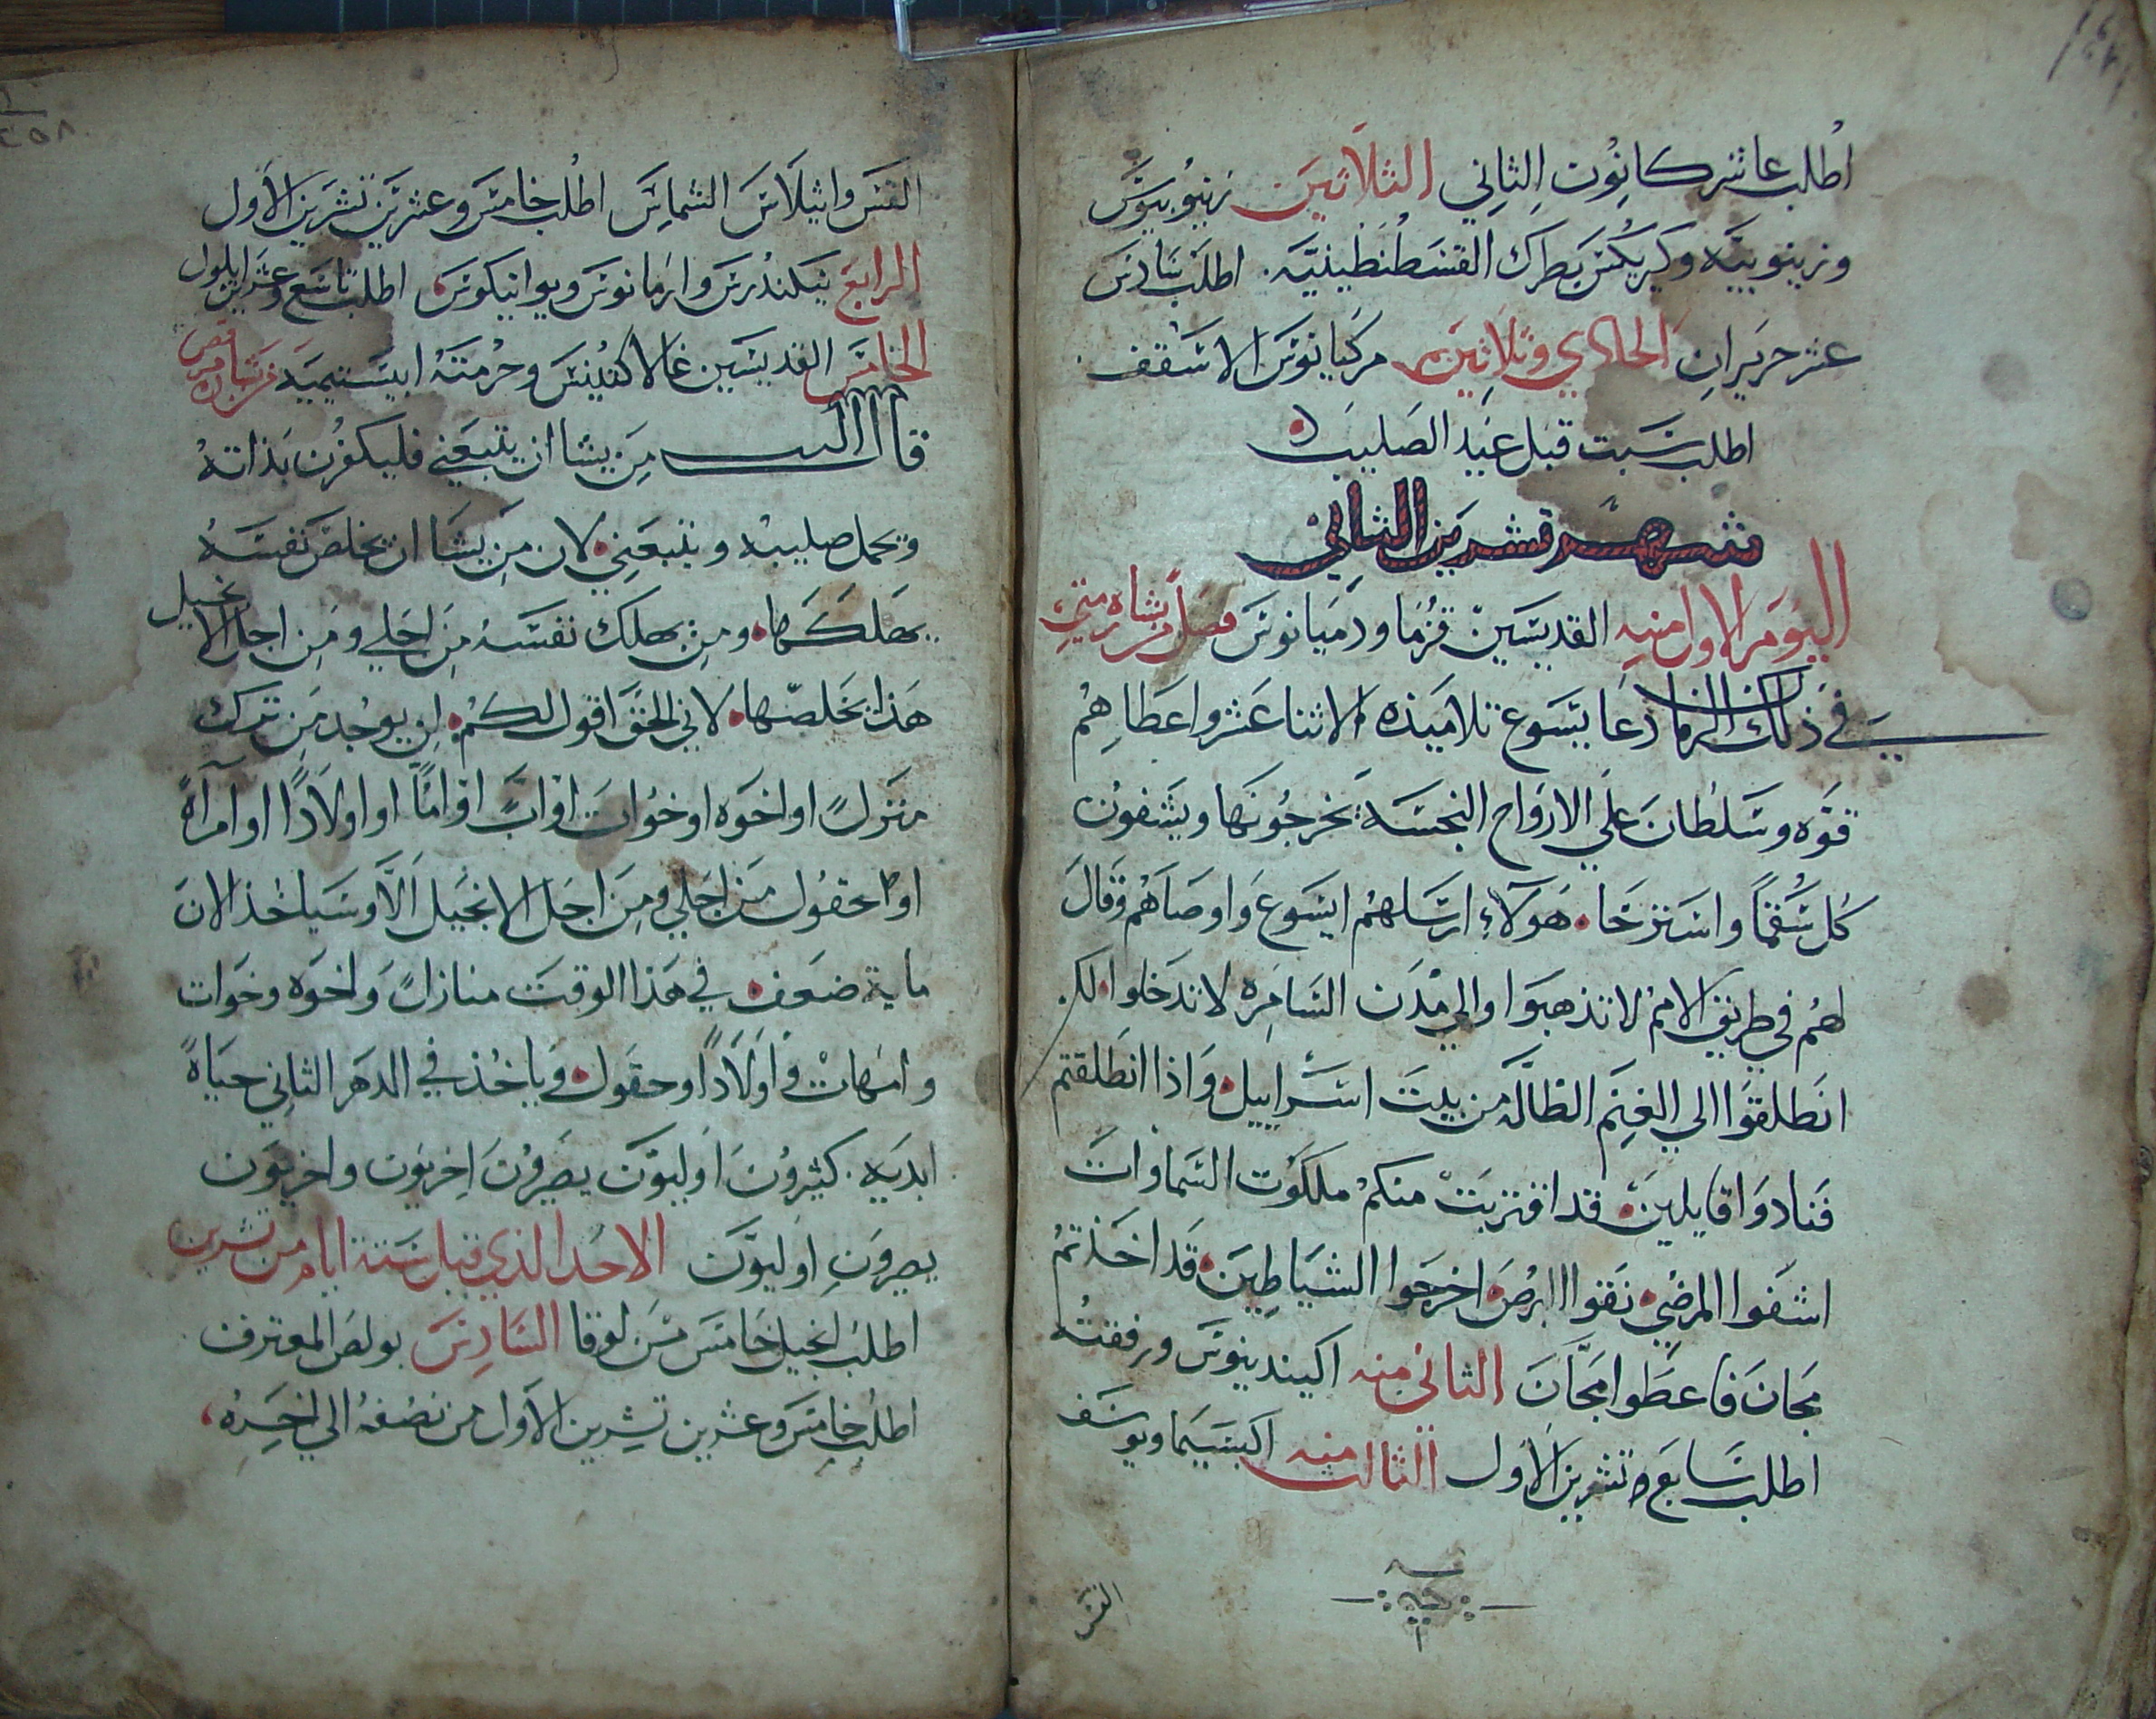 اطلب عاشر كانون الثاني الثلاثين زينوبيوس
وزينوبيه وكيريكس بطرك القسطنطينيه. اطلب سادس
عشر حزيران الحادي وثلاثين مركيانوس الاسقف
اطلب سبت قبل عيد الصليب
شهر تشرين الثاني
اليوم الاول منه القديسين قزما ودميانوس فصل من بشارة متي
في ذلك الزمان دعا يسوع تلاميذه الاثنا عشر واعطاهم
قوه وسلطان علي الارواح النجسة يخرجونها ويشفون
كل سقمًا واسترخا هولاء ارسلهم ايسوع واوصاهم وقال
لهم في طريق الامم لا تذهبوا والي مدن السامره لا تدخلوا لكن
انطلقوا الي الغنم الظالة من بيت اسراييل واذا انطلقتم
فنادوا قايلين قد اقتربت منكم ملكوت السماوات
اشفوا المرضي نقوا البرص اخرجوا الشياطين قد اخذتم
مجان فاعطوا مجان الثاني منه اكيندينوس ورفقته
اطلب سابع تشرين الاول الثالث منه اكبسيما ويوسف
القس
القس واثيلاس الشماس اطلب خامس وعشرين تشرين الاول
الرابع نيكندرس وارمانوس ويوانيكوس اطلب تاسع وعشرين ايلول
الخامس القديسين غالاكتينس وحرمته ابيستيميه من بشارة مرقص
قال الرب من يشا ان يتبعني فليكفر بذاته
ويحمل صليبه ويتبعني لان من يشا ان يخلص نفسه
يهلكها ومن يهلك نفسه من اجلي ومن اجل الانجيل
هذا يخلصها لاني الحق اقول لكم لن يوجد من ترك
منزلً او اخوه او خوات او ابً او امًا او اولادًا او امراةً
او حقول من اجلي ومن اجل الانجيل الا وسياخذ الان
ماية ضعف في هذا الوقت منازلً واخوه وخوات
وامهات واولادًا وحقول وياخذ في الدهر الثاني حياةً
ابديه. كثيرون اوليون يصيرون اخريون واخريون
يصيرون اوليون الاحد الذي قبل ستة ايام من تشرين
اطلب انجيل خامس من لوقا السادس بولص المعترف
اطلب خامس وعشرين تشرين الاول من نصفه الي اخيره